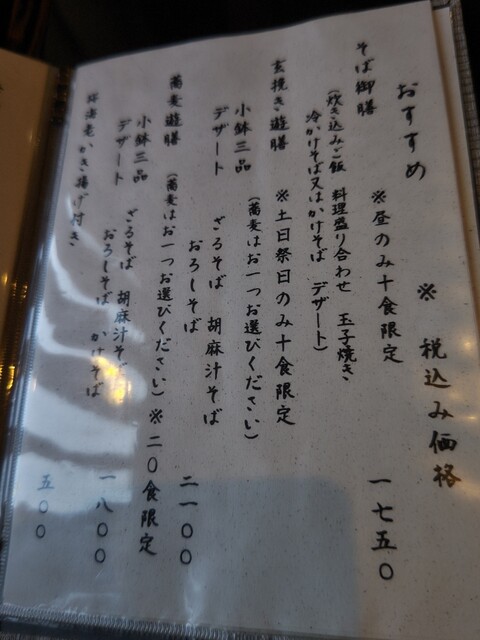 おすすめ ※ 税込み価格
そば御膳 ※昼のみ十食限定 一七五〇
(炊き込みご飯 料理盛り合わせ 玉子焼き
冷かけそば又はかけそば デザート)
玄挽き遊膳 ※土日祭日のみ十食限定
小鉢三品 (蕎麦はお一つお選びください)
デザート ざるそば 胡麻汁そば
おろしそば 二一〇〇
蕎麦遊膳 (蕎麦はお一つお選びください) ※二〇食限定
小鉢三品 ざるそば 胡麻汁そば
デザート おろしそば かけそば 一八〇〇
桜海老かき揚げ付き 五〇〇